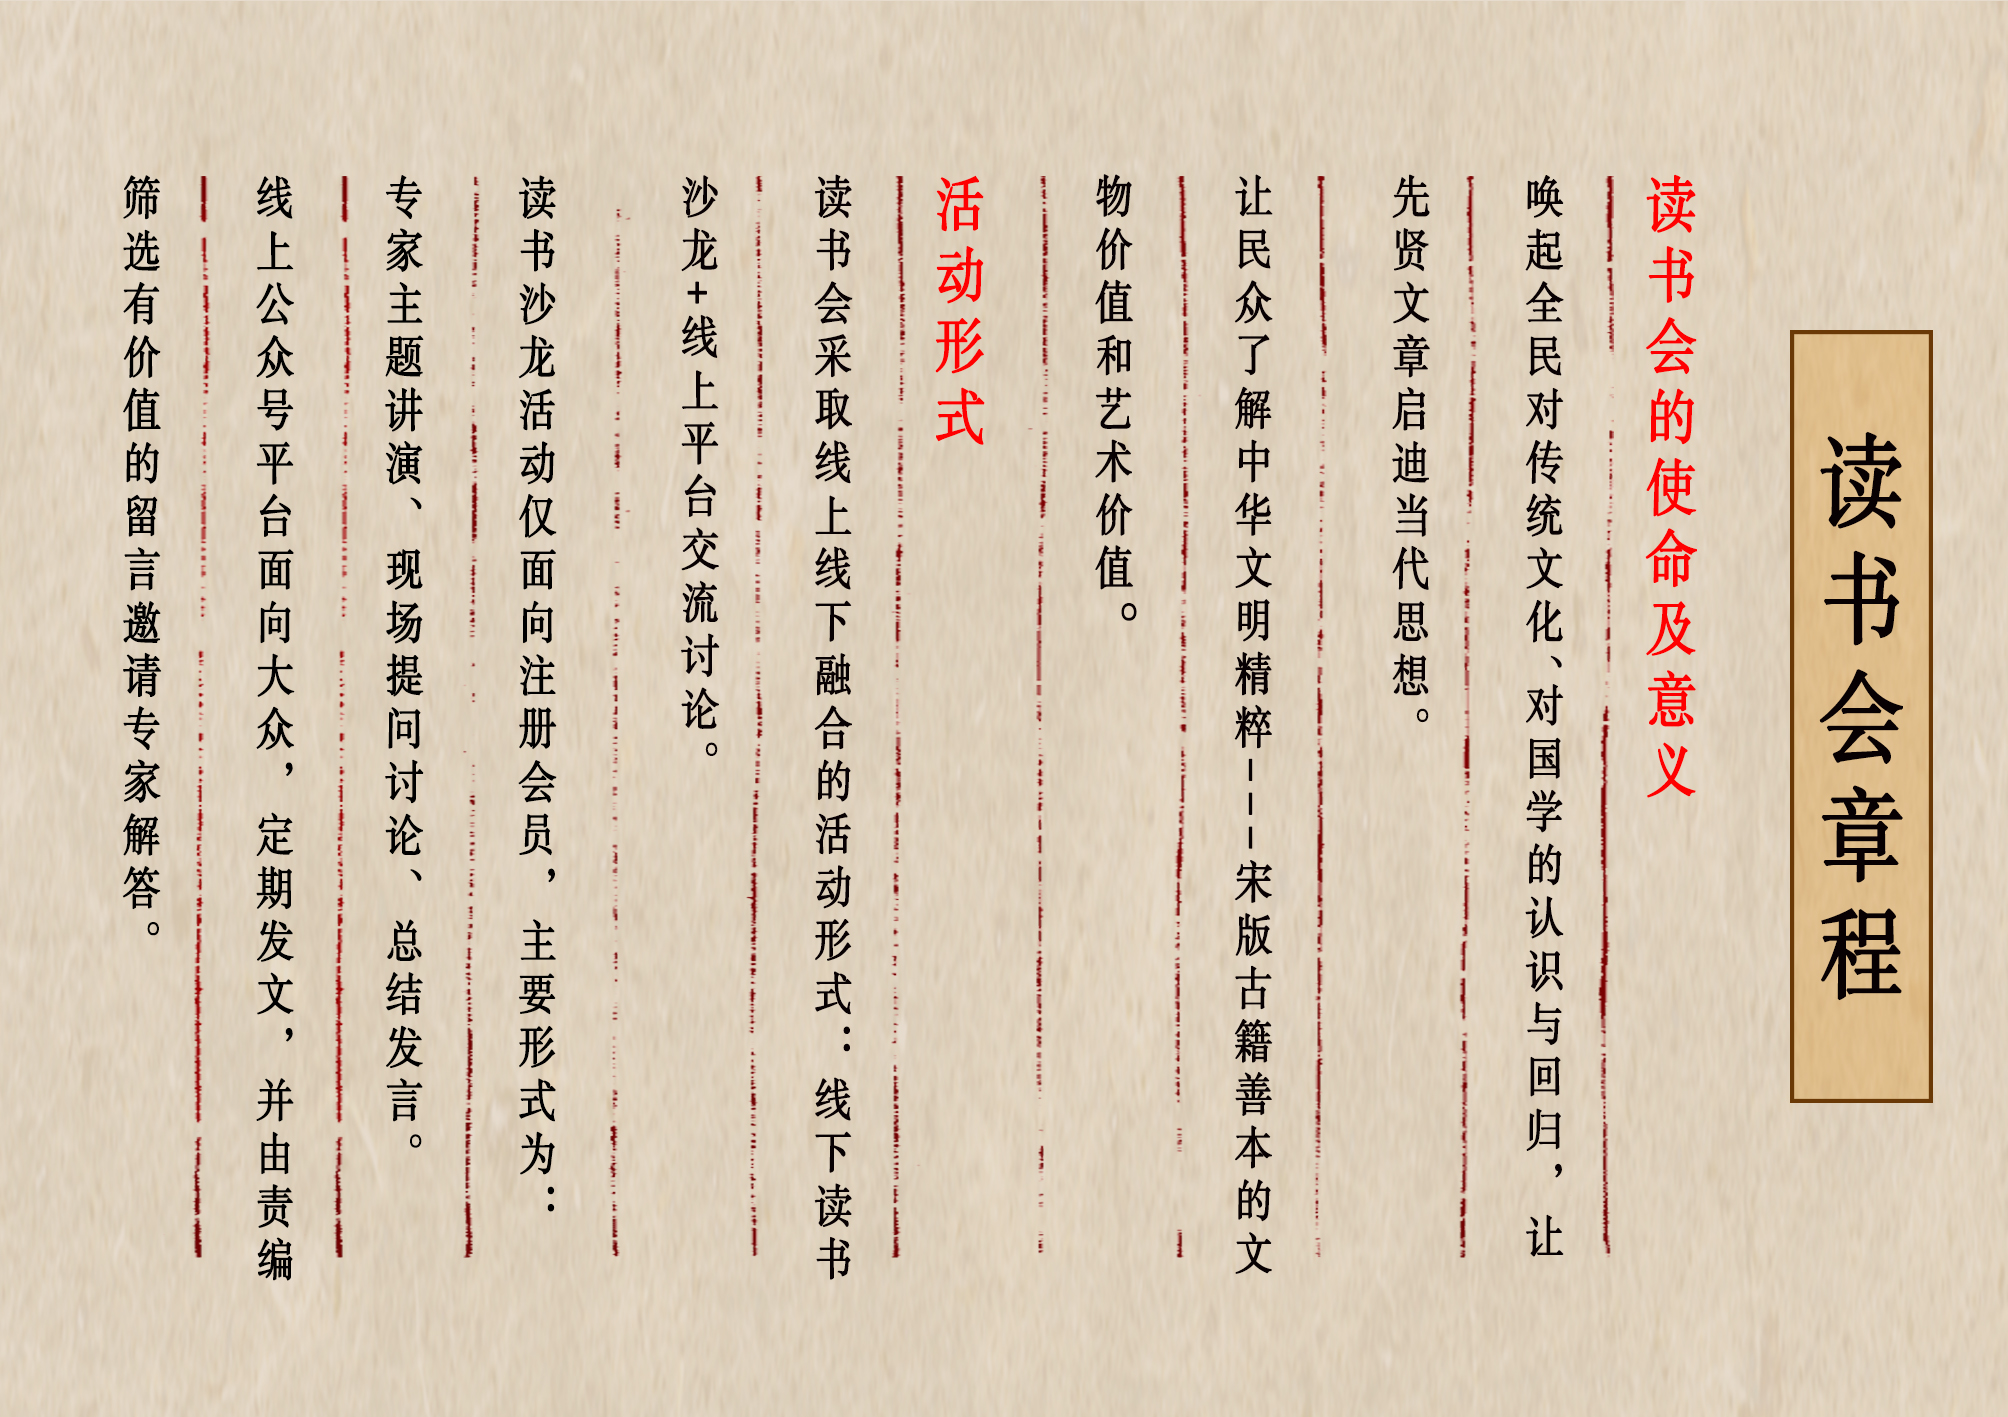 读书会章程
读书会的使命及意义
唤起全民对传统文化、对国学的认识与回归，让
先贤文章启迪当代思想。
让民众了解中华文明精粹---宋版古籍善本的文
物价值和艺术价值。
活动形式
读书会采取线上线下融合的活动形式：线下读书
沙龙+线上平台交流讨论。
读书沙龙活动仅面向注册会员，主要形式为：
专家主题讲演、现场提问讨论、总结发言。
线上公众号平台面向大众，定期发文，并由责编
筛选有价值的留言邀请专家解答。